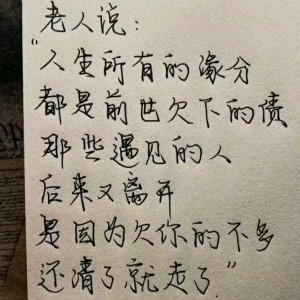 老人说：
“人生所有的缘分
都是前世欠下的债
那些遇见的人
后来又离开
是因为欠你的不多
还清了就走了”